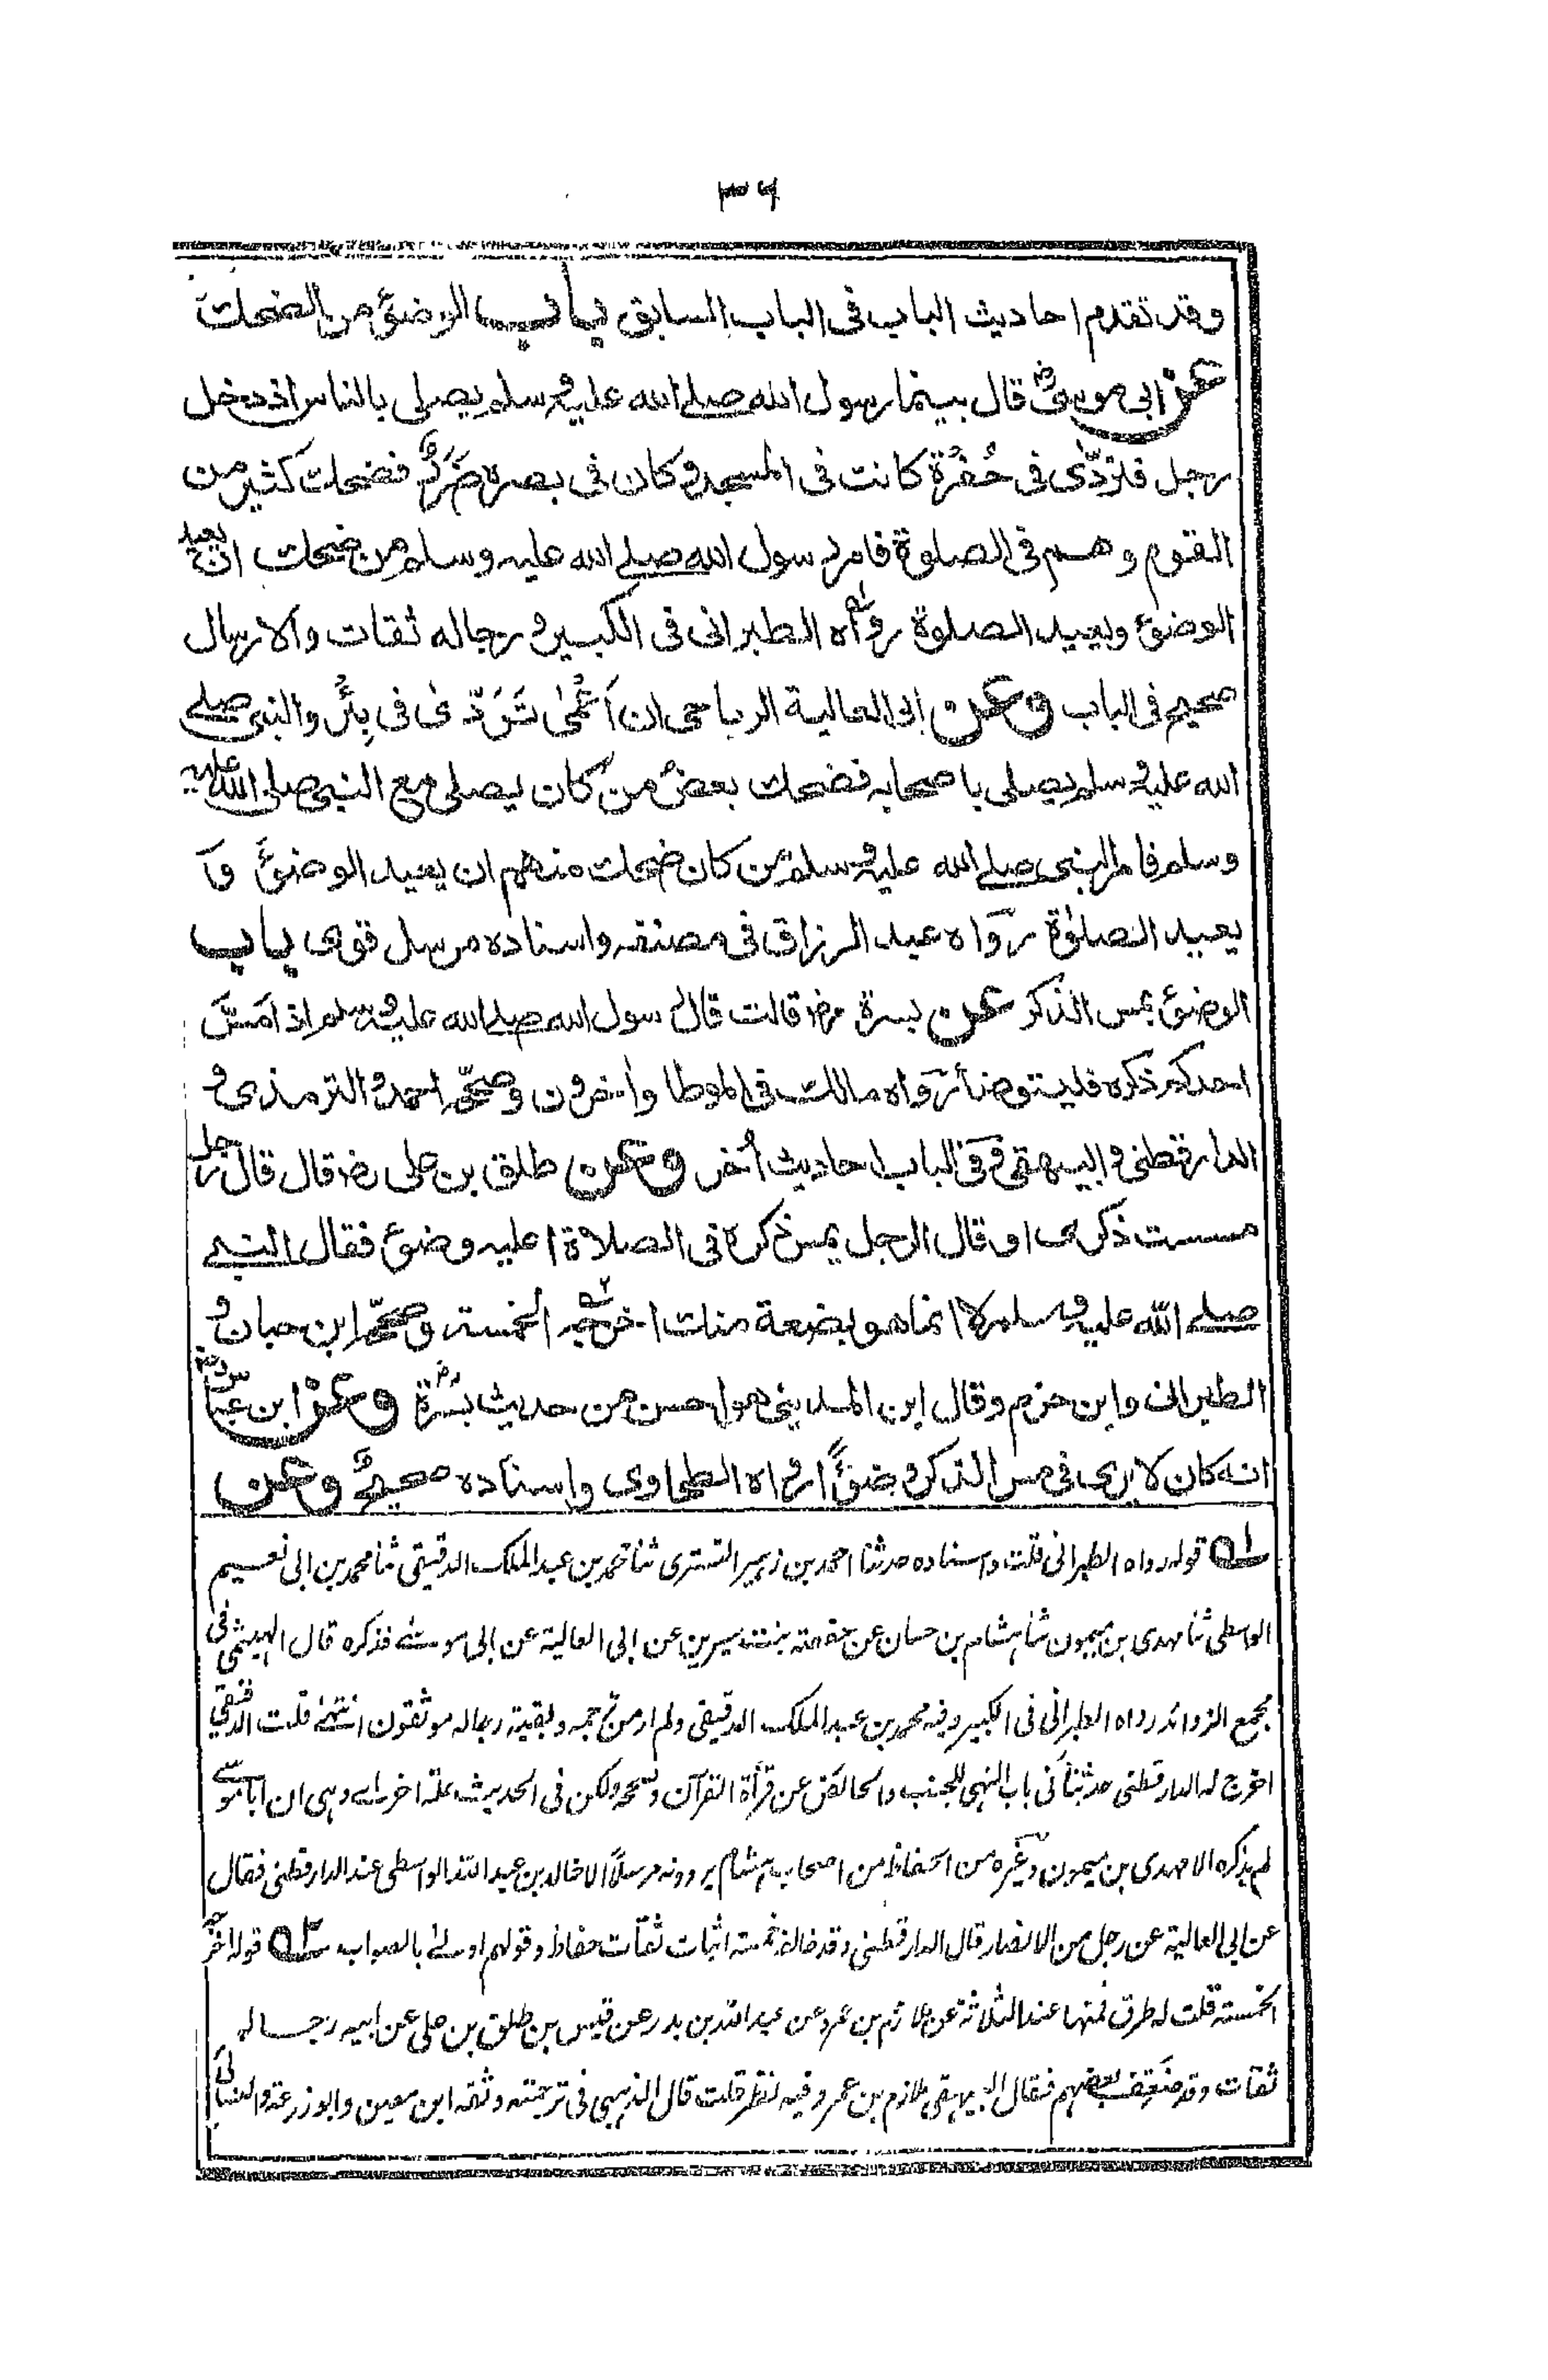 ٣٦
وقد تقدم احاديث الباب فى الباب السابق باب الوضوء من الضحك
عن ابى موسىٰ رض قال بينما رسول الله صلے الله عليه وسلم يصلى بالناس اذ دخل
رجل فتردّٰى فى حُفْرَة كانت فى المسجد وكان فى بصره ضَرَرٌ فضحك كثير من
القوم وهم فى الصلوة فامر رسول الله صلے الله عليه وسلم من ضحك ان يعيد
الوضوء ويعيد الصلوة رواه الطبرانى فى الكبير ورجاله ثقات والارسال
صحيح فى الباب وعن ابى العالية الرياحى ان اَعْمٰى تَرَدّٰى فى بِئْر والنبى صلے
الله عليه وسلم يصلى باصحابه فضحك بعض من كان يصلى مع النبى صلى الله عليه
وسلم فامر النبى صلے الله عليه وسلم من كان ضحك منهم ان يعيد الوضوء و
يعيد الصلوٰة رواه عبد الرزاق فى مصنفه واسناده مرسل قوى باب
الوضوء بمس الذكر عن بسرة رض قالت قال رسول الله صلے الله عليه وسلم اذا مَسَّ
احدكم ذكره فليتوضأ رواه مالك فى الموطا واٰخرون وصححه احمد والترمذى و
الدارقطنى والبيهقى وفى الباب احاديث اُخر وعن طلق بن على رض قال قال رجل
مسست ذكرى او قال الرجل يمس ذكره فى الصلاة اعليه وضوء فقال النبى
صلے الله عليه وسلم لا انما هو بضعة منك اخرجه الخمسة وصححه ابن حبان و
الطبرانى وابن حزم وقال ابن المدينى هو احسن من حديث بُسْرَة رض وعن ابن عباس رض
انه كان لا يرى فى مس الذكر وضوءًا رواه الطحاوى واسناده صحيح وعن
١ قوله رواه الطبرانى قلت واسناده حدثنا احمد بن زهير التسترى ثنا محمد بن عبد الملك الدقيقى ثنا محمد بن ابى نعيم
الواسطى ثنا مهدى بن ميمون ثنا هشام بن حسان عن حفصة بنت سيرين عن ابى العالية عن ابى موسىٰ فذكره قال الهيثمى فى
مجمع الزوائد رواه الطبرانى فى الكبير وفيه محمد بن عبد الملك الدقيقى ولم ار من ترجمه وبقية رجاله موثقون انتهىٰ قلت الدقيقى
اخرج له الدارقطنى حديثا فى باب النهى للجنب والحائض عن قرأة القرآن وصححه ولكن فى الحديث علة اخرىٰ وهى ان اباموسىٰ
لم يذكره الا مهدى بن ميمون وغيره من الحفاظ من اصحاب هشام يروونه مرسلًا الا خالد بن عبد الله الواسطى عند الدارقطنى فقال
عن ابى العالية عن رجل من الانصار قال الدارقطنى وقد خالفه خمسة اثبات ثقات حفاظ وقولهم اولىٰ بالصواب ٢ قوله اخرجه
الخمسة قلت له طرق فمنها عند الثلاثة عن ملازم بن عمرو عن عبد الله بن بدر عن قيس بن طلق بن على عن ابيه رجاله
ثقات وقد ضعفه بعضهم فقال البيهقى ملازم بن عمرو فيه نظر قلت قال الذهبى فى ترجمته وثقه ابن معين وابو زرعة والنسائى